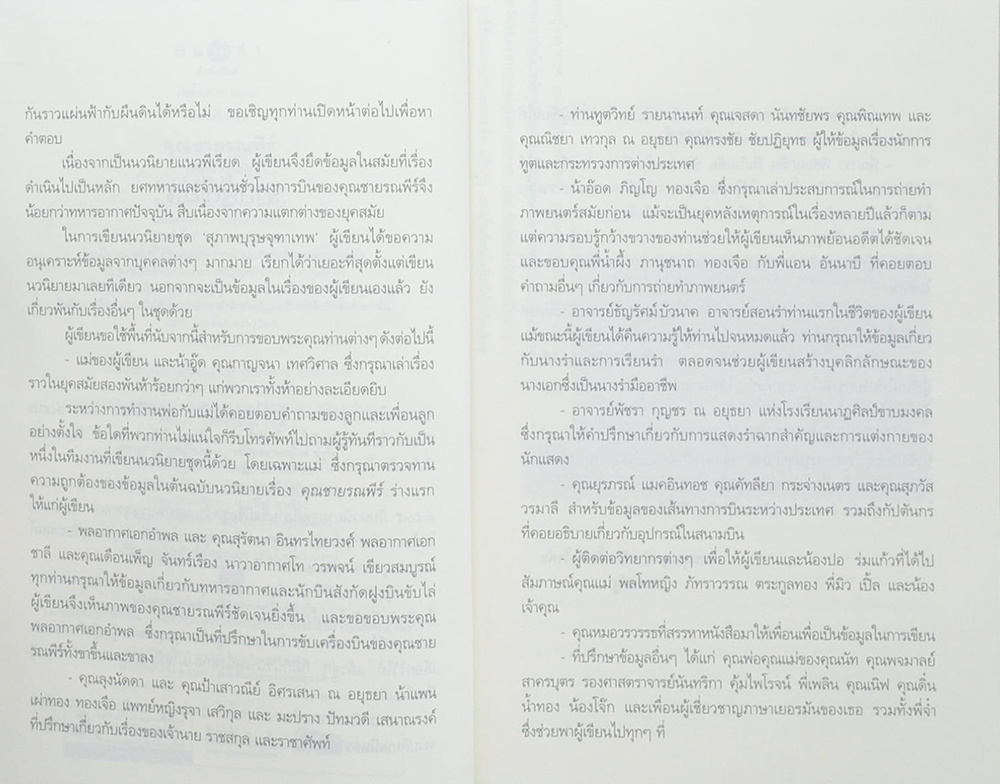 กันราวแผ่นฟ้ากับผืนดินได้หรือไม่ ขอเชิญทุกท่านเปิดหน้าต่อไปเพื่อหา
คำตอบ
เนื่องจากเป็นนวนิยายแนวพีเรียด ผู้เขียนจึงยึดข้อมูลในสมัยที่เรื่อง
ดำเนินไปเป็นหลัก ยศทหารและจำนวนชั่วโมงการบินของคุณชายรณพีร์จึง
น้อยกว่าทหารอากาศปัจจุบัน สืบเนื่องจากความแตกต่างของยุคสมัย
ในการเขียนนวนิยายชุด 'สุภาพบุรุษจุฑาเทพ' ผู้เขียนได้ขอความ
อนุเคราะห์ข้อมูลจากบุคคลต่างๆ มากมาย เรียกได้ว่าเยอะที่สุดตั้งแต่เขียน
นวนิยายมาเลยทีเดียว นอกจากจะเป็นข้อมูลในเรื่องของผู้เขียนเองแล้ว ยัง
เกี่ยวพันกับเรื่องอื่นๆ ในชุดด้วย
ผู้เขียนขอใช้พื้นที่นับจากนี้สำหรับการขอบพระคุณท่านต่างๆ ดังต่อไปนี้
- แม่ของผู้เขียน และน้าอู๊ด คุณกาญจนา เทศวิศาล ซึ่งกรุณาเล่าเรื่อง
ราวในยุคสมัยสองพันห้าร้อยกว่าๆ แก่พวกเราทั้งห้าอย่างละเอียดยิบ
ระหว่างการทำงานพ่อกับแม่ได้คอยตอบคำถามของลูกและเพื่อนลูก
อย่างตั้งใจ ข้อใดที่พวกท่านไม่แน่ใจก็รีบโทรศัพท์ไปถามผู้รู้ทันทีราวกับเป็น
หนึ่งในทีมงานที่เขียนนวนิยายชุดนี้ด้วย โดยเฉพาะแม่ ซึ่งกรุณาตรวจทาน
ความถูกต้องของข้อมูลในต้นฉบับนวนิยายเรื่อง คุณชายรณพีร์ ร่างแรก
ให้แก่ผู้เขียน
- พลอากาศเอกอำพล และ คุณสุรัตนา อินทรไทยวงศ์ พลอากาศเอก
ชาลี และคุณเดือนเพ็ญ จันทร์เรือง นาวาอากาศโท วรพจน์ เขียวสมบูรณ์
ทุกท่านกรุณาให้ข้อมูลเกี่ยวกับทหารอากาศและนักบินสังกัดฝูงบินขับไล่
ผู้เขียนจึงเห็นภาพของคุณชายรณพีร์ชัดเจนยิ่งขึ้น และขอขอบพระคุณ
พลอากาศเอกอำพล ซึ่งกรุณาเป็นที่ปรึกษาในการขับเครื่องบินของคุณชาย
รณพีร์ทั้งขาขึ้นและขาลง
- คุณลุงนัดดา และ คุณป้าเสาวณีย์ อิศรเสนา ณ อยุธยา น้าแพน
เผ่าทอง ทองเจือ แพทย์หญิงรุจา เสวิกุล และ มะปราง ปัทมวดี เสนาณรงค์
ที่ปรึกษาเกี่ยวกับเรื่องของเจ้านาย ราชสกุล และราชาศัพท์
- ท่านทูตวิทย์ รายนานนท์ คุณเจสดา นันทชัยพร คุณพิณเทพ และ
คุณณิชยา เทวกุล ณ อยุธยา คุณทรงชัย ชัยปฏิยุทธ ผู้ให้ข้อมูลเรื่องนักการ
ทูตและกระทรวงการต่างประเทศ
- น้าอ๊อด ภิญโญ ทองเจือ ซึ่งกรุณาเล่าประสบการณ์ในการถ่ายทำ
ภาพยนตร์สมัยก่อน แม้จะเป็นยุคหลังเหตุการณ์ในเรื่องหลายปีแล้วก็ตาม
แต่ความรอบรู้กว้างขวางของท่านช่วยให้ผู้เขียนเห็นภาพย้อนอดีตได้ชัดเจน
และขอบคุณพี่น้ำผึ้ง ภานุชนาถ ทองเจือ กับพี่แอน อันนาบี ที่คอยตอบ
คำถามอื่นๆ เกี่ยวกับการถ่ายทำภาพยนตร์
- อาจารย์ธัญรัศม์ บัวนาค อาจารย์สอนรำท่านแรกในชีวิตของผู้เขียน
แม้ขณะนี้ผู้เขียนได้คืนความรู้ให้ท่านไปจนหมดแล้ว ท่านกรุณาให้ข้อมูลเกี่ยว
กับนางรำและการเรียนรำ ตลอดจนช่วยผู้เขียนสร้างบุคลิกลักษณะของ
นางเอกซึ่งเป็นนางรำมืออาชีพ
- อาจารย์พัชรา กุญชร ณ อยุธยา แห่งโรงเรียนนาฏศิลป์ขาบมงคล
ซึ่งกรุณาให้คำปรึกษาเกี่ยวกับการแสดงรำฉากสำคัญและการแต่งกายของ
นักแสดง
- คุณยุรภรณ์ แมคอินทอช คุณคัทลียา กระจ่างเนตร และคุณสุภวัส
วรมาลี สำหรับข้อมูลของเส้นทางการบินระหว่างประเทศ รวมถึงกัปตันกร
ที่คอยอธิบายเกี่ยวกับอุปกรณ์ในสนามบิน
- ผู้ติดต่อวิทยากรต่างๆ เพื่อให้ผู้เขียนและน้องปอ ร่มแก้วที่ได้ไป
สัมภาษณ์คุณแม่ พลโทหญิง ภัทราวรรณ ตระกูลทอง พี่มิว เปิ้ล และน้อง
เจ้าคุณ
- คุณหมอวรวรรธที่สรรหาหนังสือมาให้เพื่อนเพื่อเป็นข้อมูลในการเขียน
- ที่ปรึกษาข้อมูลอื่นๆ ได้แก่ คุณพ่อคุณแม่ของคุณนัท คุณพจมาลย์
สาครบุตร รองศาสตราจารย์นันทริกา คุ้มไพโรจน์ พี่เพลิน คุณเนิฟ คุณติ๋น
น้ำทอง น้องโจ๊ก และเพื่อนผู้เชี่ยวชาญภาษาเยอรมันของเธอ รวมทั้งพี่จ๋ำ
ซึ่งช่วยพาผู้เขียนไปทุกๆ ที่